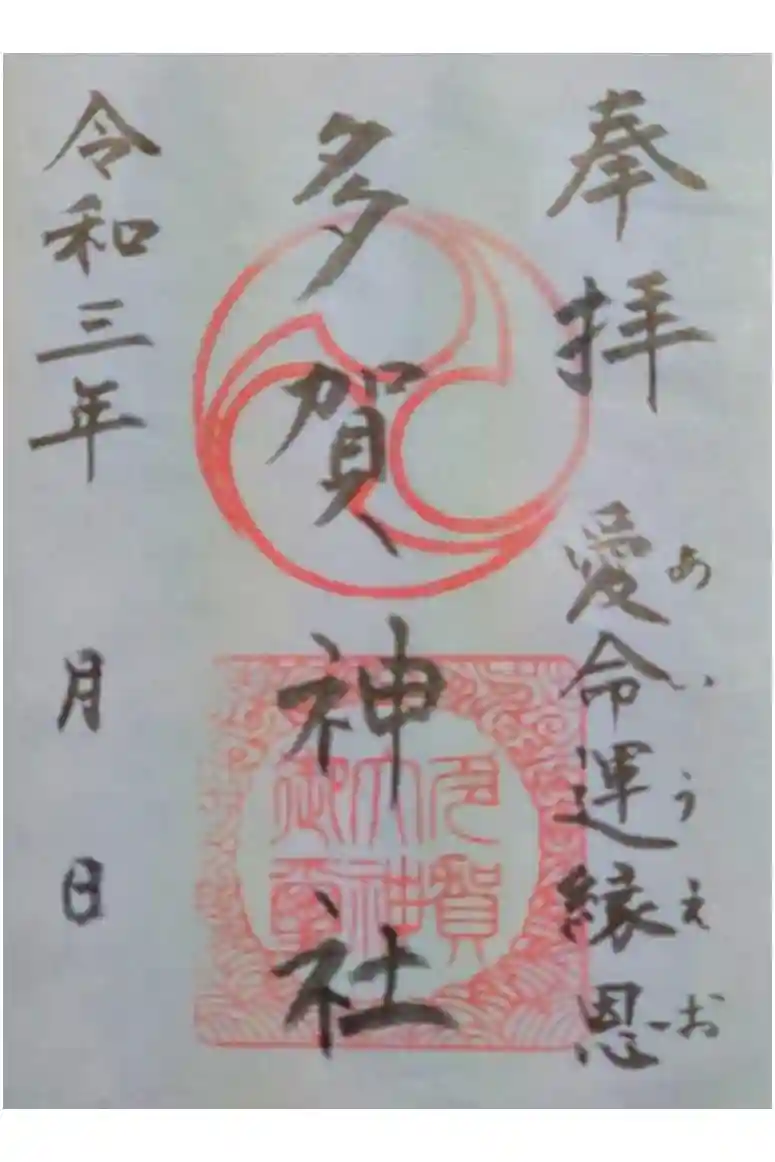 奉拝
愛命運縁恩
あいうえお
多賀神社
令和三年 月 日